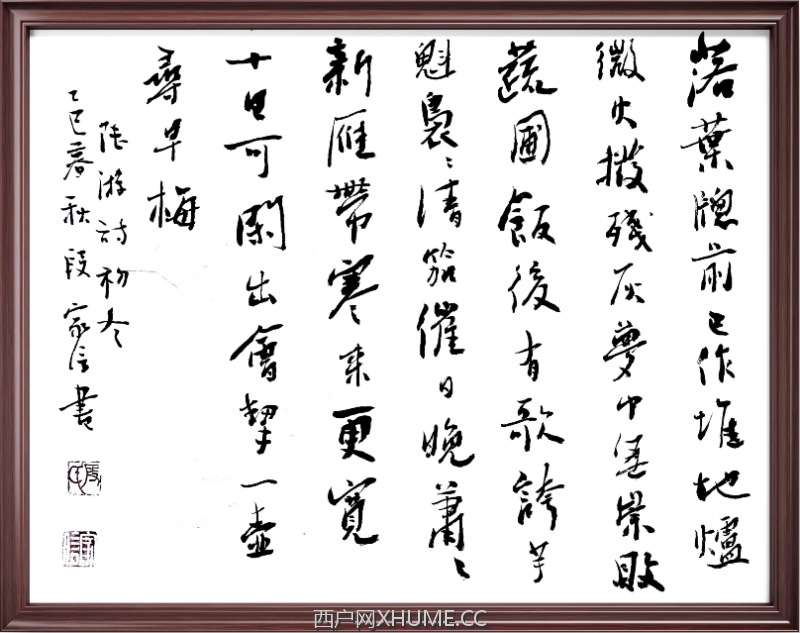 落葉牕前已作堆地爐
微火撥殘灰夢中
蔬圃飯後有歌誇芋
魁裊々清笳催日晚蕭々
新雁帶寒來更寬
十日可出會挈一壺
尋早梅
陸游詩初冬
乙巳暮秋段家信書
西户网XHUME.CC